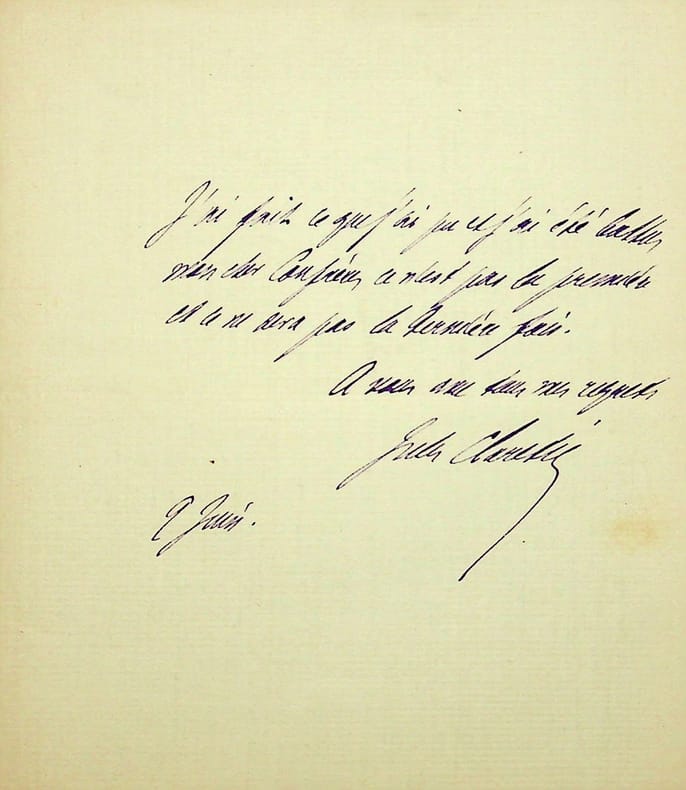 J'ai fait ce que j'ai pu et j'ai été battu
mon cher Confrère, ce n'est pas la première
et ce ne sera pas la dernière fois.
A vous avec tous mes regrets
Jules Claretie
9 Juin.